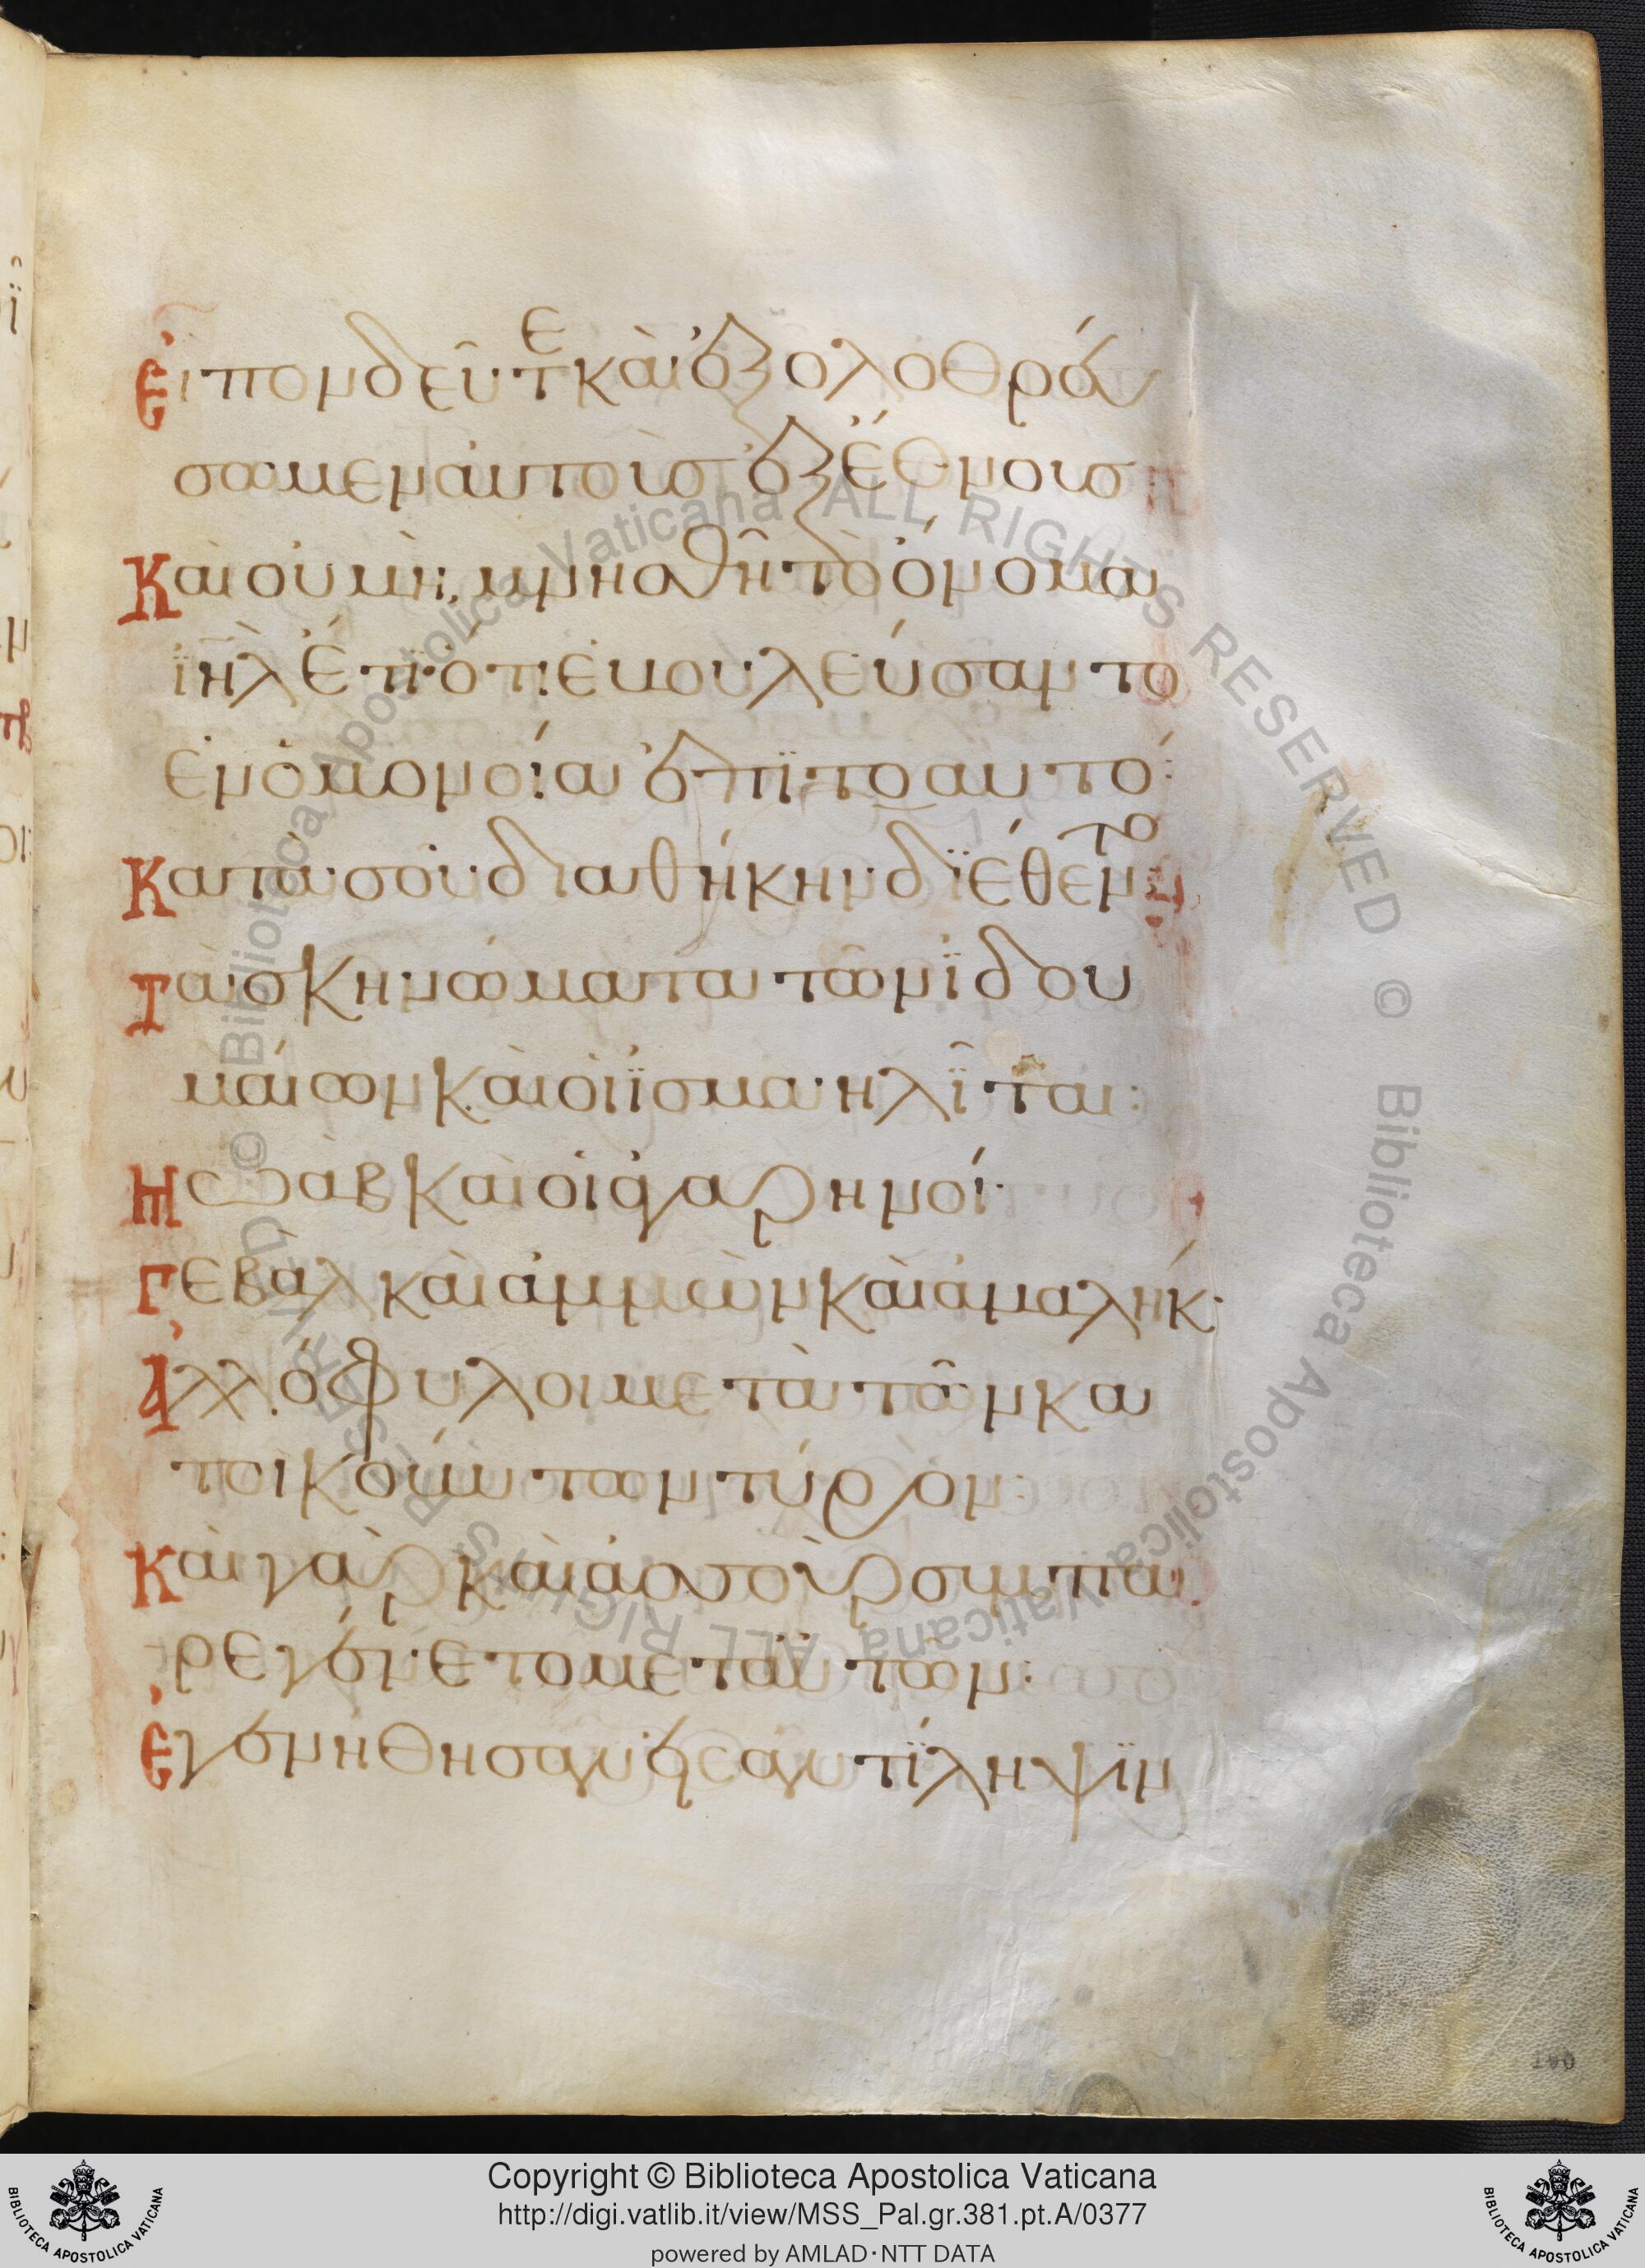 Εἶπον δεῦτε καὶ ἐξολοθρεύ
σωμεν αὐτοὺς ἐξ ἔθνους
Καὶ οὐ μὴ μνησθῆ τὸ ὄνομα
ϊηλ ἔτϊ· ὅτι ἐβουλεύσαντο
ἐν ὁμονοία ἐπϊτοαυτό:
Κατα σοῦ διαθήκην δϊέθεντο
Τὰ σκηνώματα τῶν ϊδου
μαίων καὶ οἱ ϊσμαηλῖται:
Μωὰβ καὶ οἱ ἀγαρηνοί·
Γεβὰλ καὶ ἀμμὼν καὶ ἀμαλήκ·
Ἀλλόφυλοι μετὰ τῶν κα
τοικούντων τύρον:
Καὶ γὰρ καὶ ἀσσοὺρ συμπα
ρεγένετο μετ αὐτῶν:
Ἐγενήθησαν εἰς ἀντίληψϊν
190
Copyright © Biblioteca Apostolica Vaticana
http://digi.vatlib.it/view/MSS_Pal.gr.381.pt.A/0377
powered by AMLAD·NTT DATA
BIBLIOTECA APOSTOLICA VATICANA
BIBLIOTECA APOSTOLICA VATICANA
© Biblioteca Apostolica Vaticana ALL RIGHTS RESERVED © Biblioteca Apostolica Vaticana ALL RIGHTS RESERVED